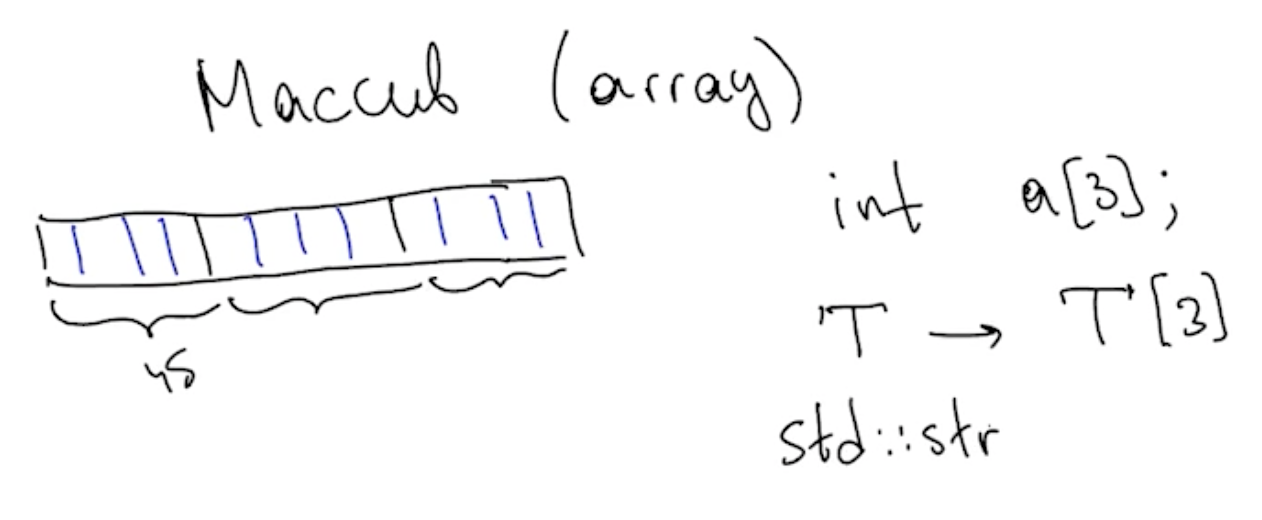 Массив (array)
int a[3];
T → T[3]
4Б
std::str